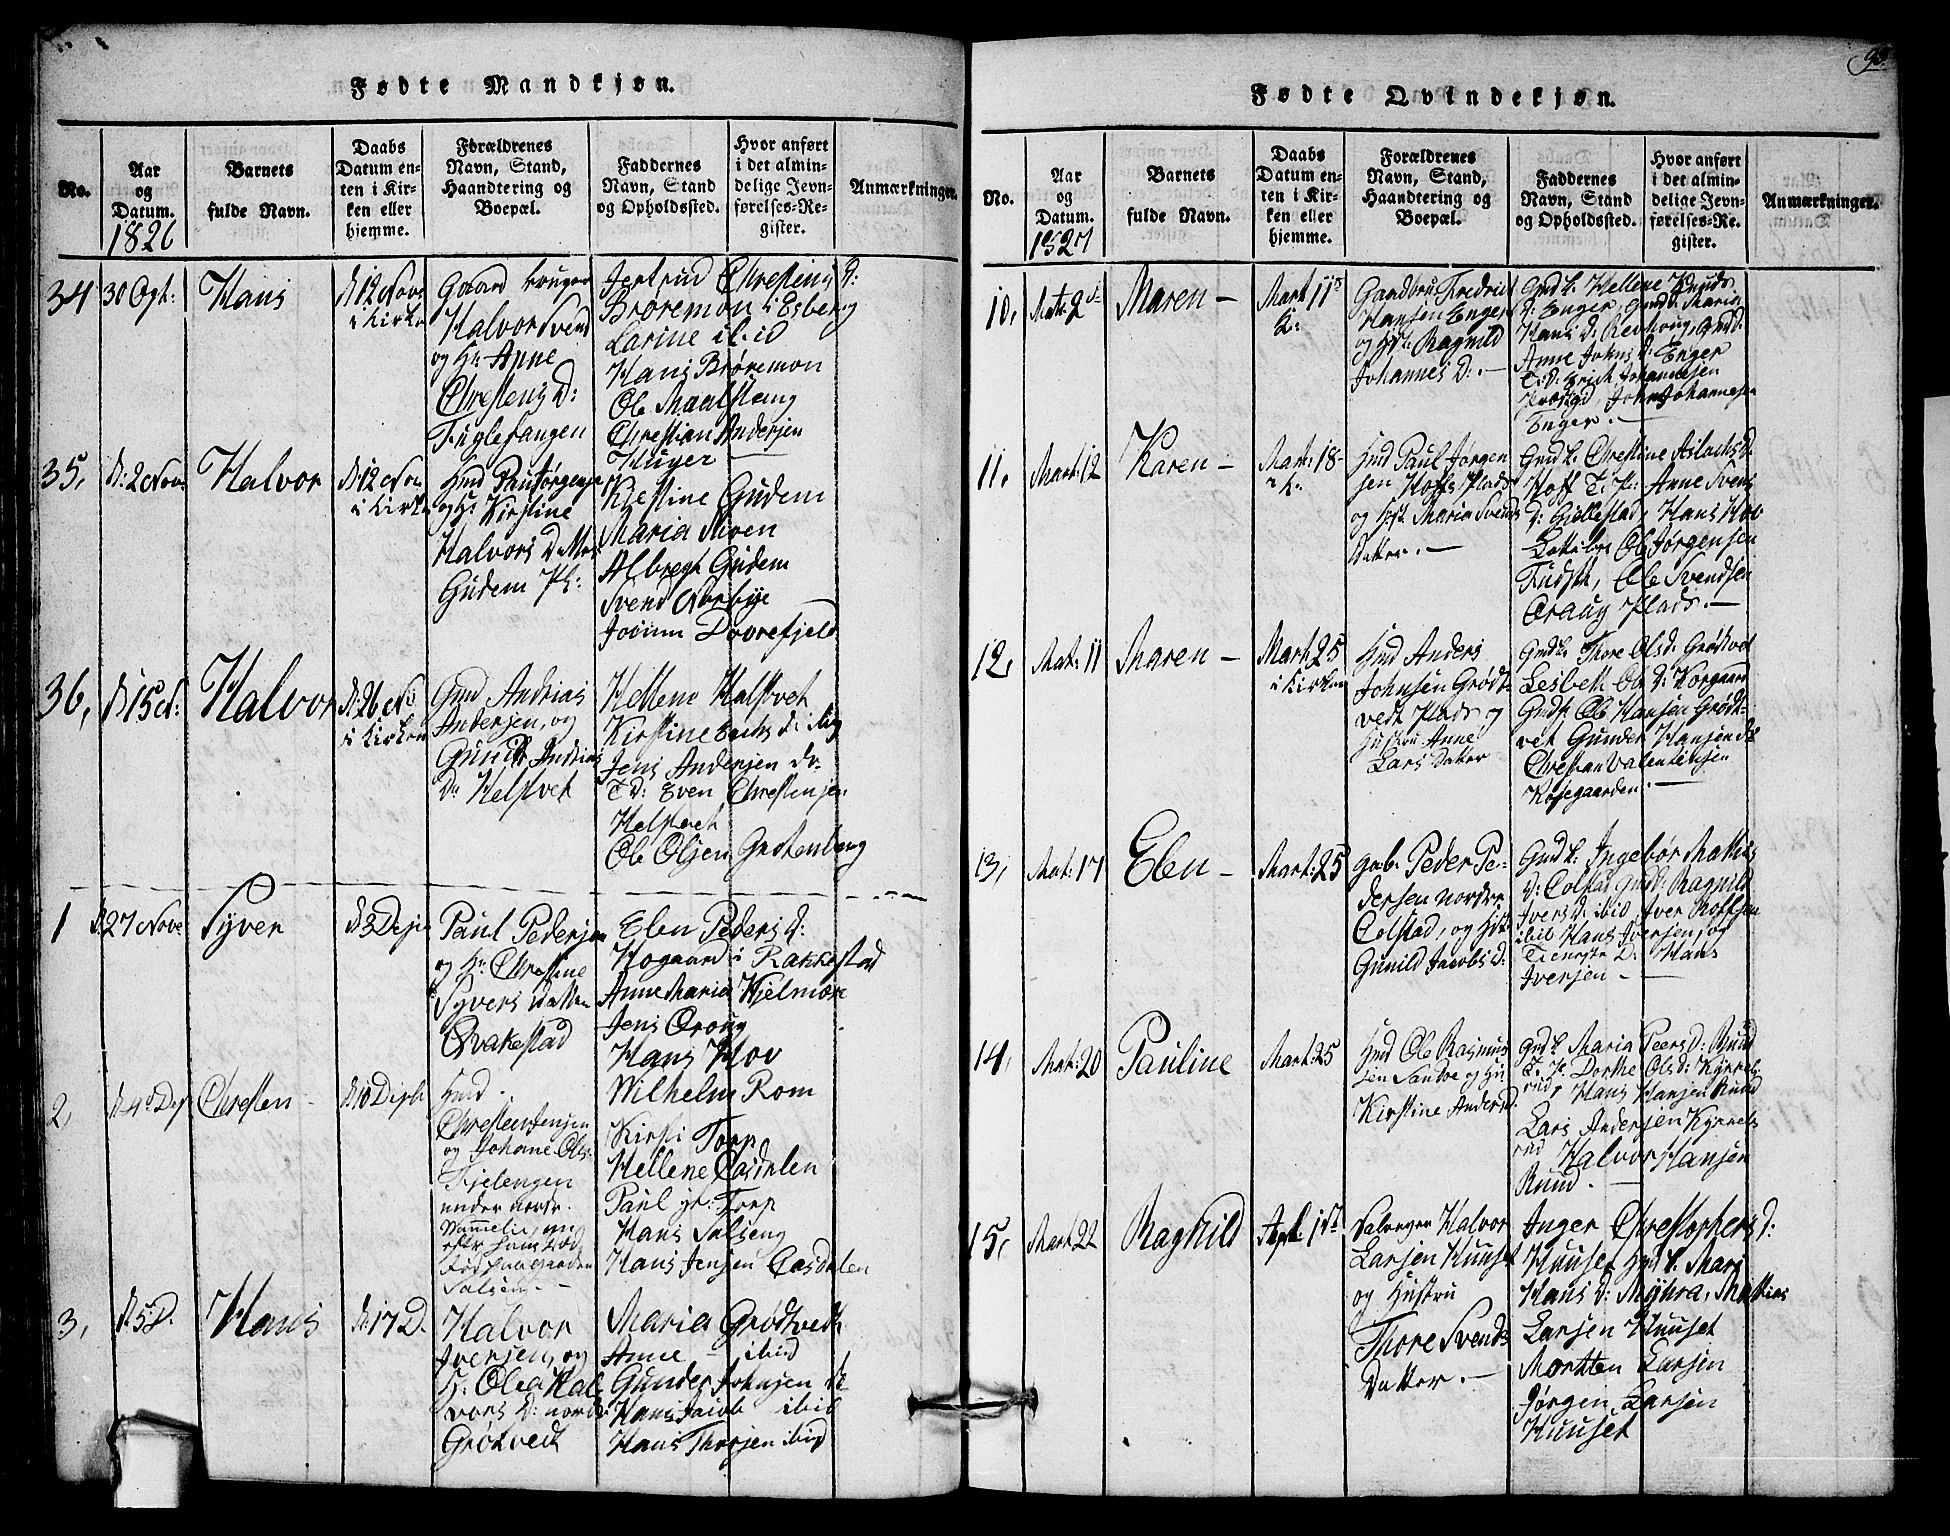 Fødte Mandkjøn.
No.
Aar
og
Datum.
1826
Barnets
fulde Navn.
Daabs
Datum en-
ten i Kir-
ken eller
hjemme.
Forældrenes
Navn, Stand,
Haandtering og
Boepæl.
Faddernes
Navn, Stand
og Opholdssted.
Hvor anført
i det almin-
delige Jevn-
førelses-Re-
gister.
Anmærkninger.
34
30 Ogt:
Hans
D 12 Nove
i Kirke
Gaard bruger
Halvor Svend
og H: Anne
Chrestens D:
Fuglesangen
Jertrud Chrestens D:
Brøremon i Esberg
Larine ibid
Hans Brøremon
Ole Maalstang
Christian Andersen
Huyer
35,
D: 2 Nov:
Halvor
D 12 Nov
i Kirke
Hmd Paul Jørgensen
og H: Kirstine
Halvors Datter
Gudem Pl:
Kjestine Gudem
Maria Moen
Albregt Gudem
Svend Aarbye
Joeium Dovrefjeld
36,
D 15 N:
Halvor
D: 26 No
i Kirken
Gmd Andrias
Andersen, og
Gunild Andrias
D: Helstvet
Hellene Halstvet
Kirstine Eriks D: ibid
Jens Andersen do
T D: Even Chrestensen
Helstvet
Ole Olsen Grotenberg
1
D 27 Nove
Syver
D 3 Desem
Paul Pedersen
og H: Chrestine
Syvers Datter
Qvakestad
Elen Peders D:
Hogaard i Rakkestad
Anne Maria Kjelmøe
Jens Ørong
Hans Hov
Wilhelm Rom
2,
D 4 Des
Chresten
D 10 Desbr
Hmd.
Chresten Jensen
og Johane Ols:
Fjelengen
under nordr.
Mamelie,
Født paa gaarden
Salseng.
Kirsti Torp
Hellene Casdalen
Paul yr: Torp
Hans Salseng
Hans Jensen Casdalen
3,
D: 5 D.
Hans
D: 17 D.
Halvor
Iversen, og
H: Olea Hal-
vors D: nordr
Grøtvedt
Maria Grødtvedt
Anne - ibid
Gunder Johnsen do
Hans Jacob ibid
Hans Thorsen ibid
93.
Fødte Qvindekjøn.
No.
Aar
og
Datum.
1827
Barnets
fulde Navn.
Daabs
Datum en-
ten i Kir-
ken eller
hjemme.
Forældrenes
Navn, Stand,
Haandtering og
Boepæl.
Faddernes
Navn, Stand
og Opholdssted.
Hvor anført
i det almin-
delige Jevn-
førelses-Re-
gister.
Anmærkninger.
10,
Mat: 2
Maren -
Mart 11
K:
Gaardbru: Fredrik
Hansen Enger
og Hst: Ragnild
Johannes D: -
Gmd k. Hellene Knuds
D: Enger, Gmd D: Maria
Hans D: Revhoug, Gmd D:
Anne Johns D: Enger
T. D: Erich Johannesen
John Johannesen
Enger. -
11,
Mart: 12
Karen -
Mart: 18
K:
Hmd Paul Jørgen
sen Hoffs Plads
og Hst. Maria Svends
Datter. -
Gmd k. Chrestine Aslachs D:
Hoff T. P: Anne Svens
D: Gjellestad, Hans Hov
Ole Jørgensen
Ole Svendsen
Øraug Plads. -
12,
Mat: 11
Maren -
Mart 25
i Kirken
Hmd Anders
Johnsen Grødt-
vedt Plads og
Hustru Anne
Lars Datter
Gmd k. Thore Ols D: Grødtvet
Lesbeth Ole D: Korgaard
Gmds. Ole Hansen Grødt-
vet Gunder Hansen do
Chrestian Valentinsen
Rosegaarden. -
13,
Mat: 17
Elen -
Mart: 25
Gab. Peder Pe-
dersen nordre
Colstad, og Hst:
Gunild Jacobs D:
Gmd k. Ingebør Mathis
D: Colstad Gmd: Ragnild
Ivers D: ibid, Iver Roffsen
ibid Hans Iversen, og
Tieneste D: Hans
Iversen -
14,
Mat: 20
Pauline
Mart: 25
Hmd Ole Rasmus
sen Sandve og Hu
Kirstine Anders D.
Gmd k. Maria Peers D: Ruud
T. P. Dorthe Ols D: Kyrrels
rud, Hans Hansen Ruud
Lars Andersen Kyrrels
rud Halvor Hansen
Ruud. -
15,
Mart 22
Ragnild
Apr: 1
Selveyer Halvor
Larsen Huuset
og Hustru
Thore Svends
Datter. -
Inger Chrestophers D:
Huuset Hmd k. Mari
Hans D: Myhra, Mathias
Larsen Huuset
Mortten Larsen
Jørgen Larsen
Huuset